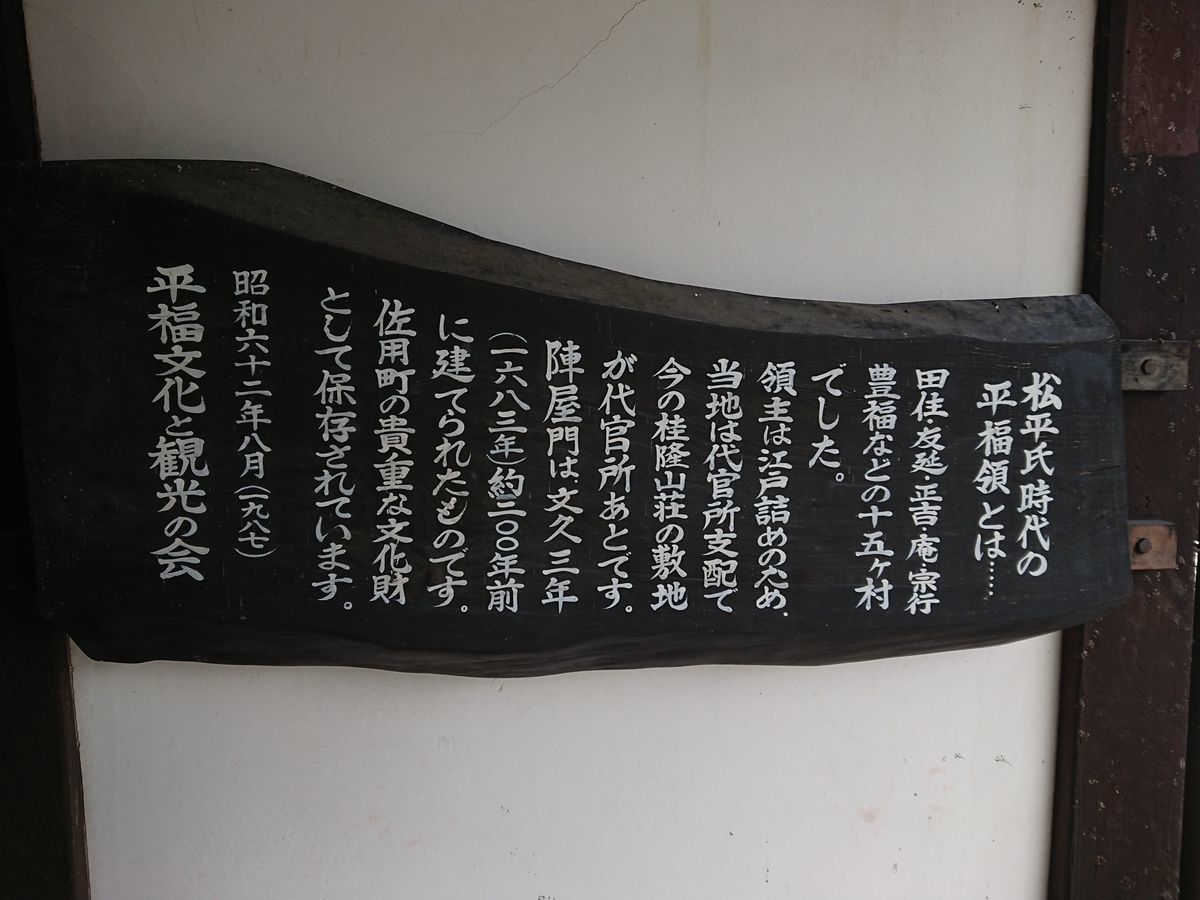 松平氏時代の
平福領とは……
田住・友延・正吉・庵・宗行
豊福などの十五ヶ村
でした。
領主は江戸詰めのため、
当地は代官所支配で
今の桂隆山荘の敷地
が代官所あとです。
陣屋門は、文久三年
(一六八三年)約二〇〇年前
に建てられたものです。
佐用町の貴重な文化財
として保存されています。
昭和六十二年八月(一九八七)
平福文化と観光の会